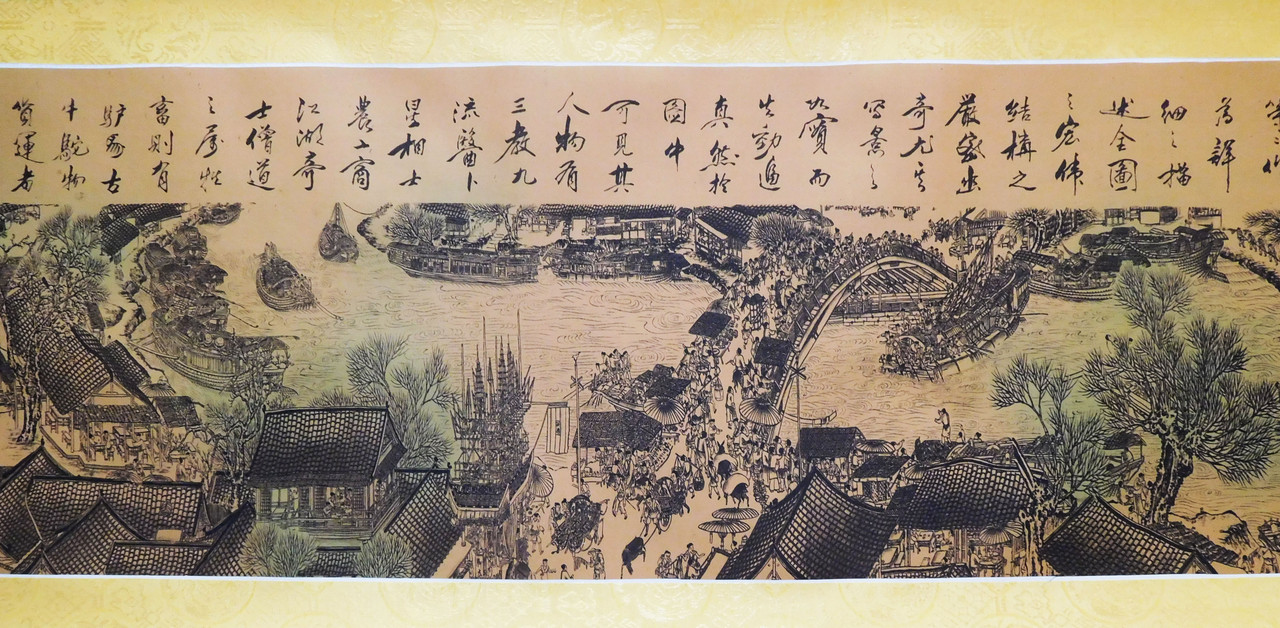 為詳
細之描
述全圖
之宏伟
結構之
嚴密出
奇尤其
写景之
實而
生動逼
真然於
圖中
可見其
人物有
三教九
流醫卜
星相士
農工商
江湖奇
士僧道
之属牲
畜則有
驴
牛駝物
貨運者